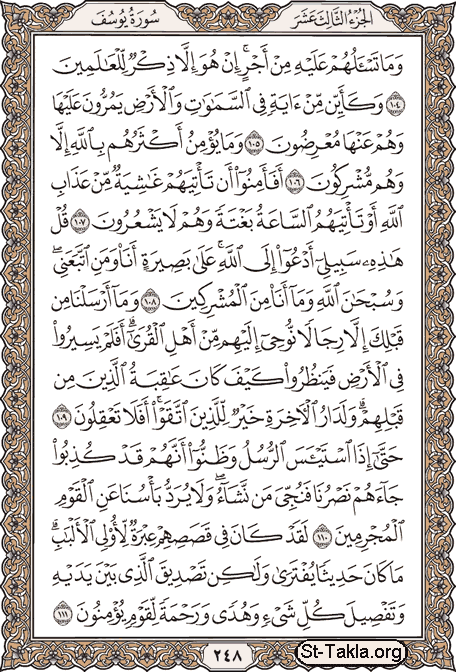 الجزء الثالث عشر سورة يوسف
وَمَا تَسْـَٔلُهُمْ عَلَيْهِ مِنْ أَجْرٍ ۚ إِنْ هُوَ إِلَّا ذِكْرٌ لِّلْعَـٰلَمِينَ
١٠٤ وَكَأَيِّن مِّنْ ءَايَةٍ فِى ٱلسَّمَـٰوَٰتِ وَٱلْأَرْضِ يَمُرُّونَ عَلَيْهَا
وَهُمْ عَنْهَا مُعْرِضُونَ ١٠٥ وَمَا يُؤْمِنُ أَكْثَرُهُم بِٱللَّهِ إِلَّا
وَهُم مُّشْرِكُونَ ١٠٦ أَفَأَمِنُوٓا۟ أَن تَأْتِيَهُمْ غَـٰشِيَةٌ مِّنْ عَذَابِ
ٱللَّهِ أَوْ تَأْتِيَهُمُ ٱلسَّاعَةُ بَغْتَةً وَهُمْ لَا يَشْعُرُونَ ١٠٧ قُلْ
هَـٰذِهِۦ سَبِيلِىٓ أَدْعُوٓا۟ إِلَى ٱللَّهِ ۚ عَلَىٰ بَصِيرَةٍ أَنَا۠ وَمَنِ ٱتَّبَعَنِى ۖ
وَسُبْحَـٰنَ ٱللَّهِ وَمَآ أَنَا۠ مِنَ ٱلْمُشْرِكِينَ ١٠٨ وَمَآ أَرْسَلْنَا مِن
قَبْلِكَ إِلَّا رِجَالًا نُّوحِىٓ إِلَيْهِم مِّنْ أَهْلِ ٱلْقُرَىٰٓ ۗ أَفَلَمْ يَسِيرُوا۟
فِى ٱلْأَرْضِ فَيَنظُرُوا۟ كَيْفَ كَانَ عَـٰقِبَةُ ٱلَّذِينَ مِن
قَبْلِهِمْ ۗ وَلَدَارُ ٱلْـَٔاخِرَةِ خَيْرٌ لِّلَّذِينَ ٱتَّقَوْا۟ ۗ أَفَلَا تَعْقِلُونَ ١٠٩
حَتَّىٰٓ إِذَا ٱسْتَيْـَٔسَ ٱلرُّسُلُ وَظَنُّوٓا۟ أَنَّهُمْ قَدْ كُذِبُوا۟
جَآءَهُمْ نَصْرُنَا فَنُجِّىَ مَن نَّشَآءُ ۖ وَلَا يُرَدُّ بَأْسُنَا عَنِ ٱلْقَوْمِ
ٱلْمُجْرِمِينَ ١١٠ لَقَدْ كَانَ فِى قَصَصِهِمْ عِبْرَةٌ لِّأُو۟لِى ٱلْأَلْبَـٰبِ ۗ
مَا كَانَ حَدِيثًا يُفْتَرَىٰ وَلَـٰكِن تَصْدِيقَ ٱلَّذِى بَيْنَ يَدَيْهِ
وَتَفْصِيلَ كُلِّ شَىْءٍ وَهُدًى وَرَحْمَةً لِّقَوْمٍ يُؤْمِنُونَ ١١١
٢٤٨
St-Takla.org